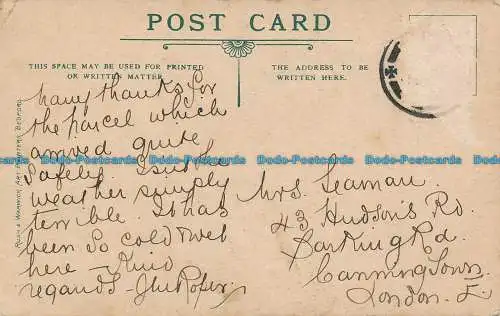 POST CARD
THIS SPACE MAY BE USED FOR PRINTED
OR WRITTEN MATTER.
THE ADDRESS TO BE
WRITTEN HERE.
many thanks for
the parcel which
arrived quite
safely. Isn't the
weather simply
terrible. It has
been so cold & wet
here – Kind
regards – J.W. Roper.
Mrs. Seaman.
43 Hudson's Rd.
Barking Rd.
Canning Town.
London. E.
RUSH & WARWICK, ART PRINTERS, BEDFORD.
Dodo-Postcards Dodo-Postcards Dodo-Postcards Dodo-Postcards